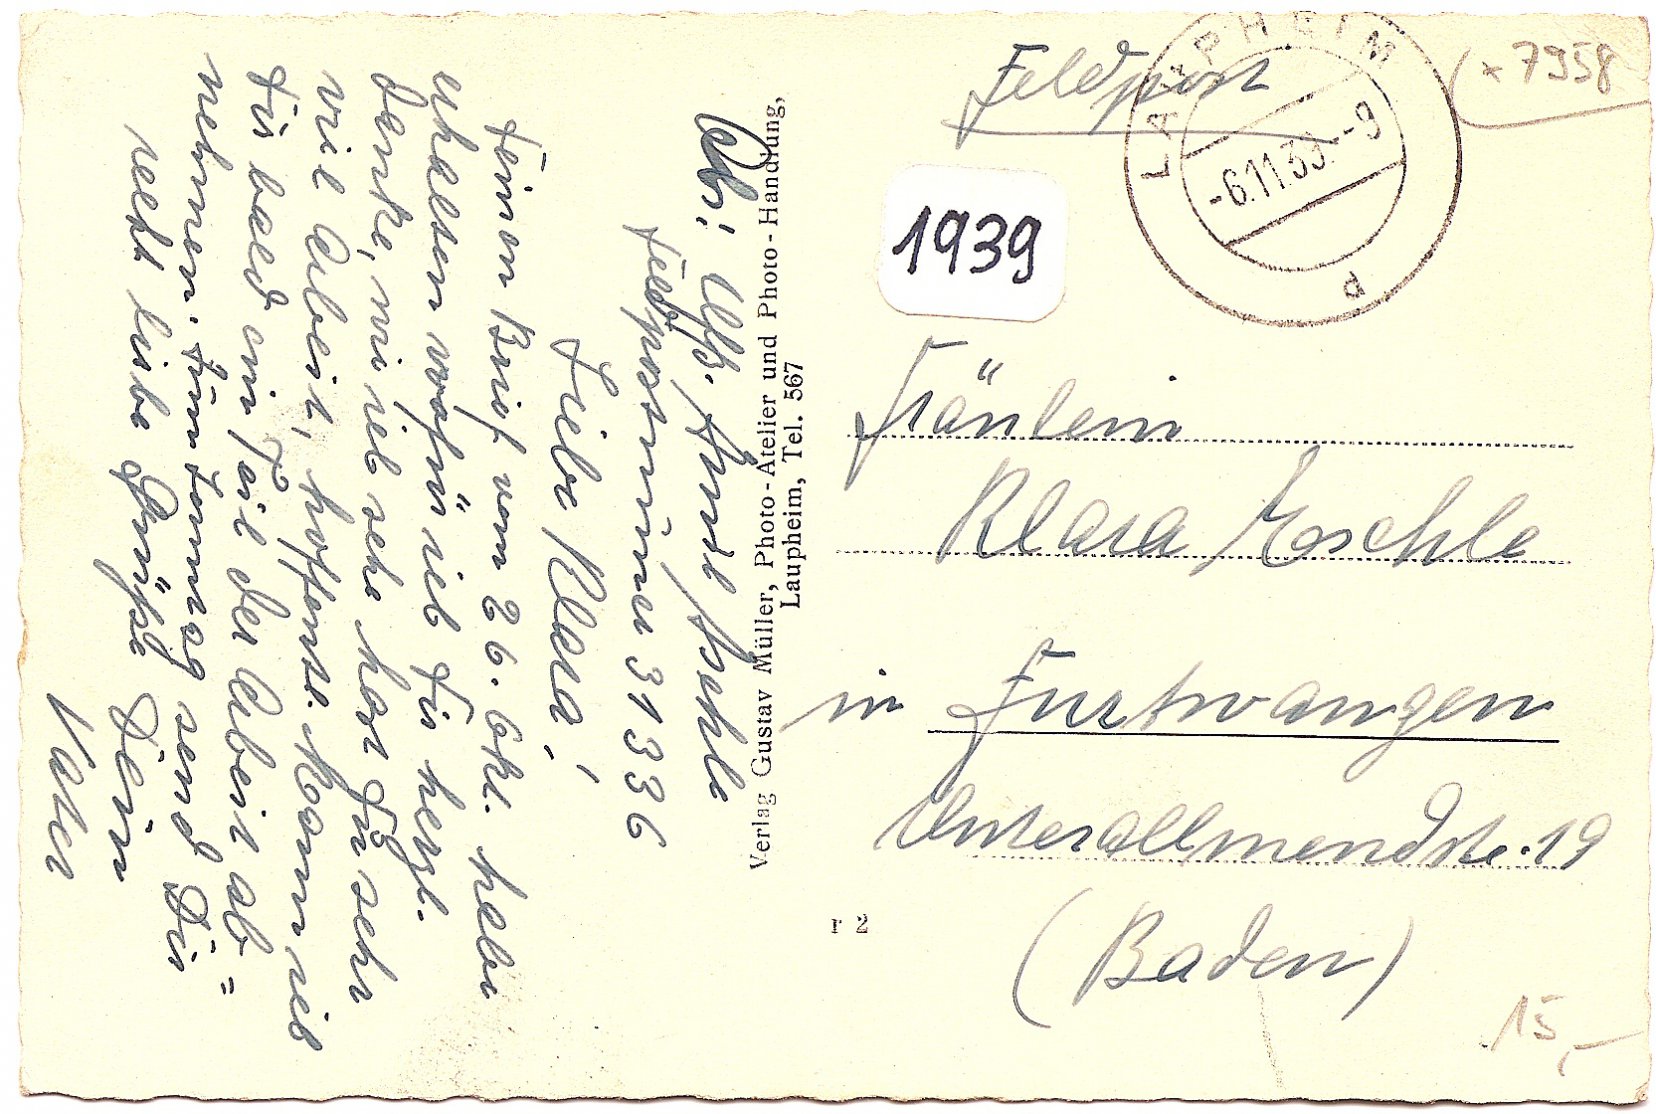 Feldpost
LAUPHEIM
-6.11.39.-9
* 7958
1939
Fräulein
Klara Eschle
in Furtwangen
Unterallmendstr. 19
(Baden)
15,-
r 2
Verlag Gustav Müller, Photo-Atelier und Photo-Handlung,
Laupheim, Tel. 567
Abs: Uffz. Eschle
Feldpostnummer 31336
Liebe Klara!
Deinen Brief vom 26. Okt. habe
erhalten wofür ich Dir herzl.
danke, wie ich sehe hast Du sehr
viel Arbeit, hoffentl. kann ich
Dir bald ein Teil der Arbeit ab=
nehmen. send Dir
recht liebe Grüße Dein
Vater